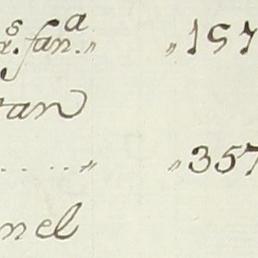 fan.ª " " 157
tan
..... " " 357
nel